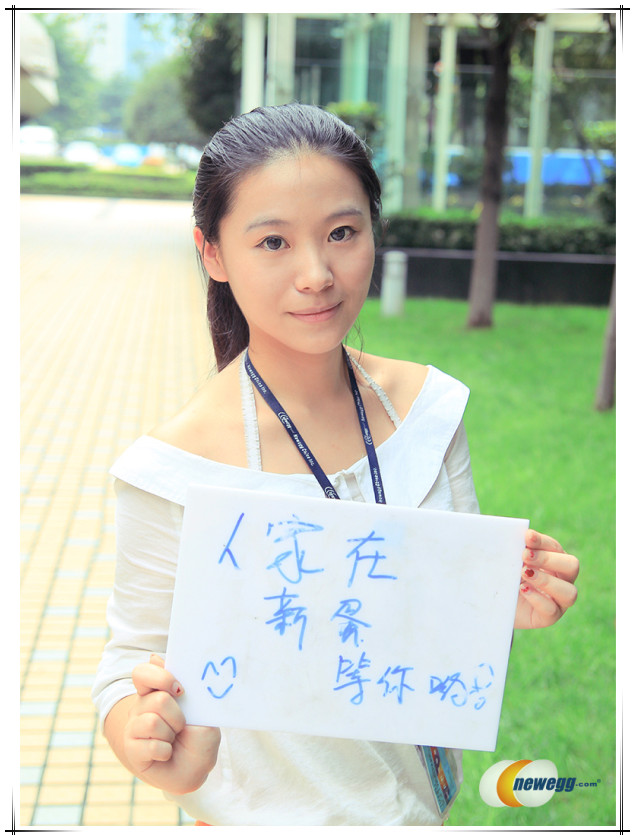 人家在
新蛋
等你哟
newegg.com®